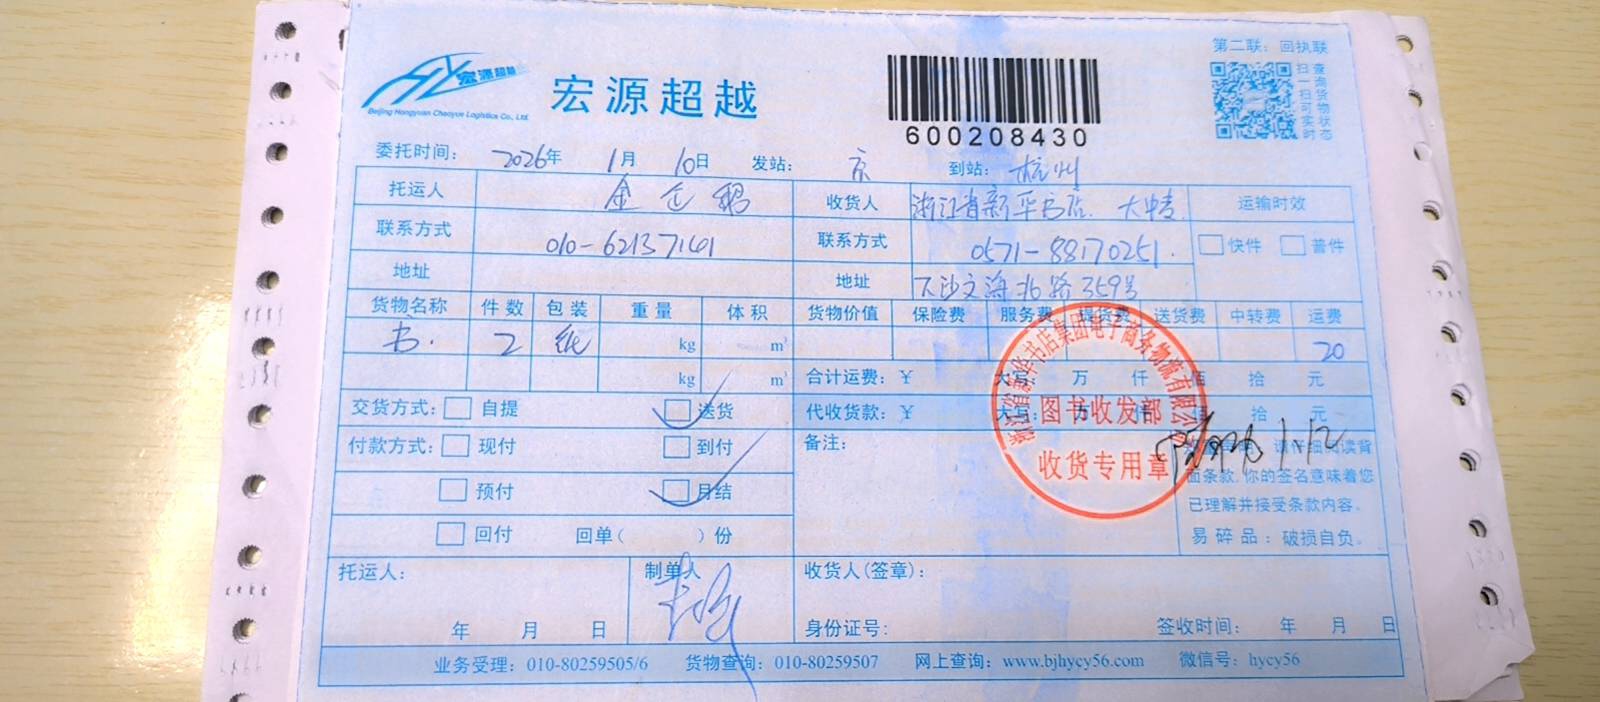 宏源超越
Beijing Hongyuan Chaoyue Logistics Co., Ltd.
宏源超越
600208430
第二联：回执联
扫一扫可实时
查询货物状态
委托时间： 2026年 1月 10日 发站： 京 到站： 杭州
托运人 金 企 鹅 收货人 浙江省新华书店. 大中专 运输时效
联系方式 010-62137141 联系方式 0571-88170251. 快件 普件
地址 地址 下沙文海北路359号
货物名称 件数 包装 重量 体积 货物价值 保险费 服务费 提货费 送货费 中转费 运费
书. 2 纸 kg m³ 20
kg m³ 合计运费：¥ 大写： 万 仟 佰 拾 元
交货方式： 自提 送货 代收货款：¥ 大写： 万 仟 佰 拾 元
付款方式： 现付 到付 备注：
预付 月结
回付 回单( )份
请仔细阅读背
面条款，你的签名意味着您
已理解并接受条款内容。
易碎品：破损自负。
浙江省新华书店集团电子商务物流有限公司
图书收发部
收货专用章
1/12
托运人： 制单人 收货人(签章)：
年 月 日 身份证号： 签收时间： 年 月 日
业务受理：010-80259505/6 货物查询：010-80259507 网上查询：www.bjhycy56.com 微信号：hycy56